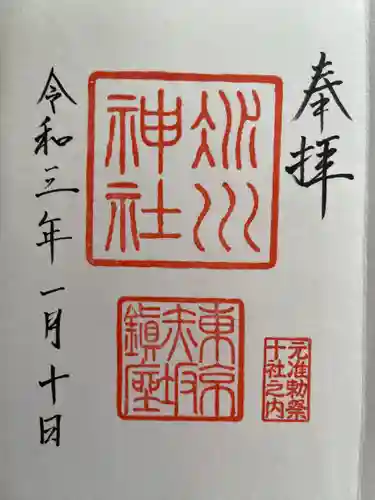 奉拝
氷川
神社
東京
赤坂
鎮座
元准勅祭
十社之内
令和三年一月十日